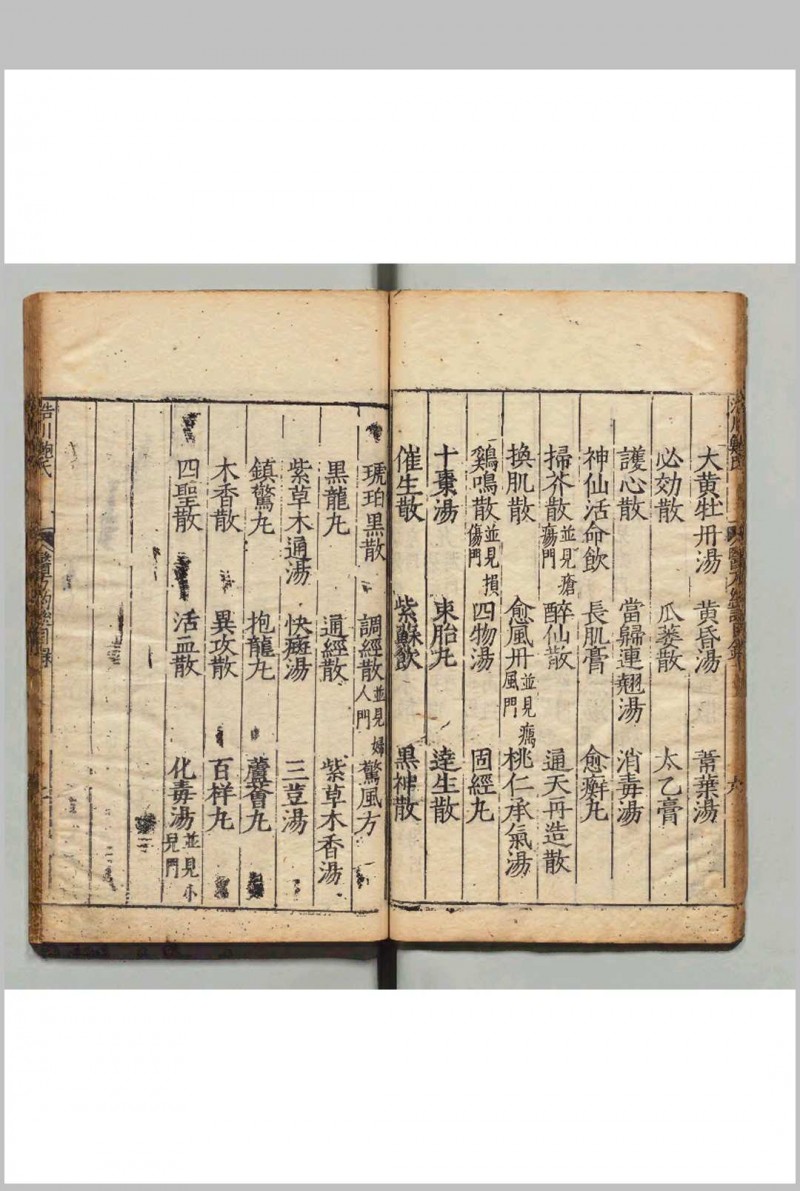 大黄牡丹湯 黄昏湯 葦葉湯
必効散 瓜蔞散 太乙膏
護心散 當歸連翹湯 消毒湯
神仙活命飲 長肌膏 愈癬丸
掃芥散並見瘡瘍門 醉仙散 通天再造散
換肌散 愈風丹並見癘風門 桃仁承氣湯
鷄鳴散並見損傷門 四物湯 固經丸
十棗湯 束胎丸 達生散
催生散 紫蘇飲 黑神散
琥珀黑散 調經散並見婦人門 驚風方
黑龍丸 通經散 紫草木香湯
紫草木通湯 快癍湯 三荳湯
鎮驚丸 抱龍丸 蘆薈丸
木香散 異攻散 百祥丸
四聖散 活血散 化毒湯並見小兒門